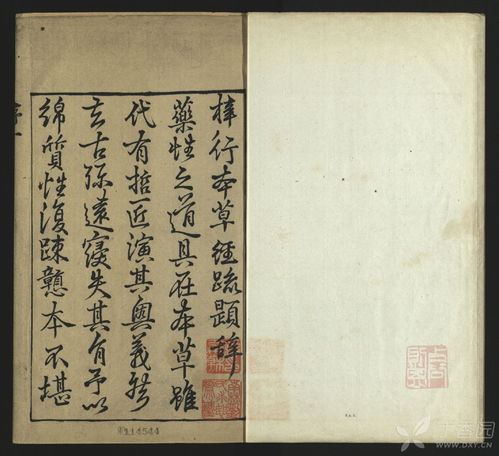 梓行本草經疏題辭
藥性之道具在本草雖
代有哲匠演其奧義然
去古彌遠寖失其旨予以
綿質性復疎戇本不堪
序一
114544
丁香园
WWW.DXY.CN